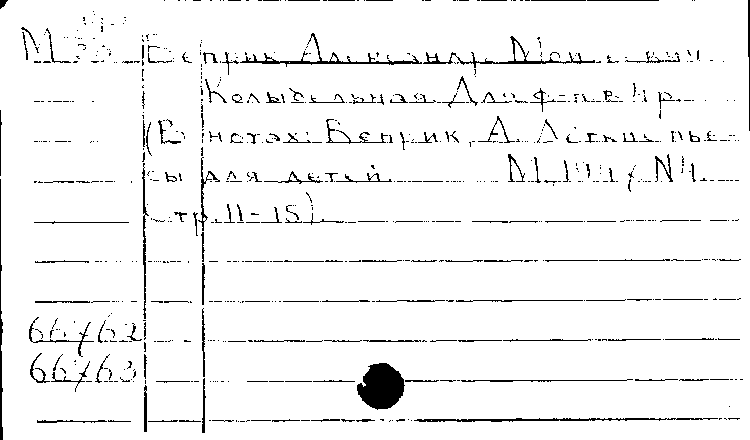 М
Веприк, Александр Моисеевич.
Колыбельная. Для ф-п. в 4 р.
(В нотах: Веприк, А. Легкие пье-
сы для детей. М., N4.
Стр. 11-15).
66762
66763